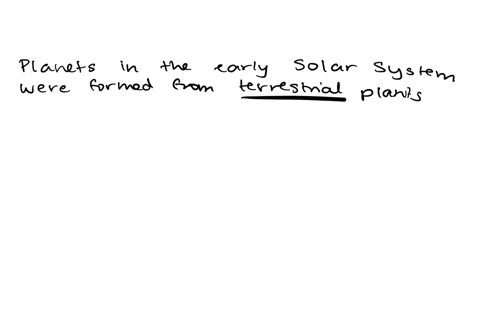 Planets in the early Solar System
were formed from terrestrial plants